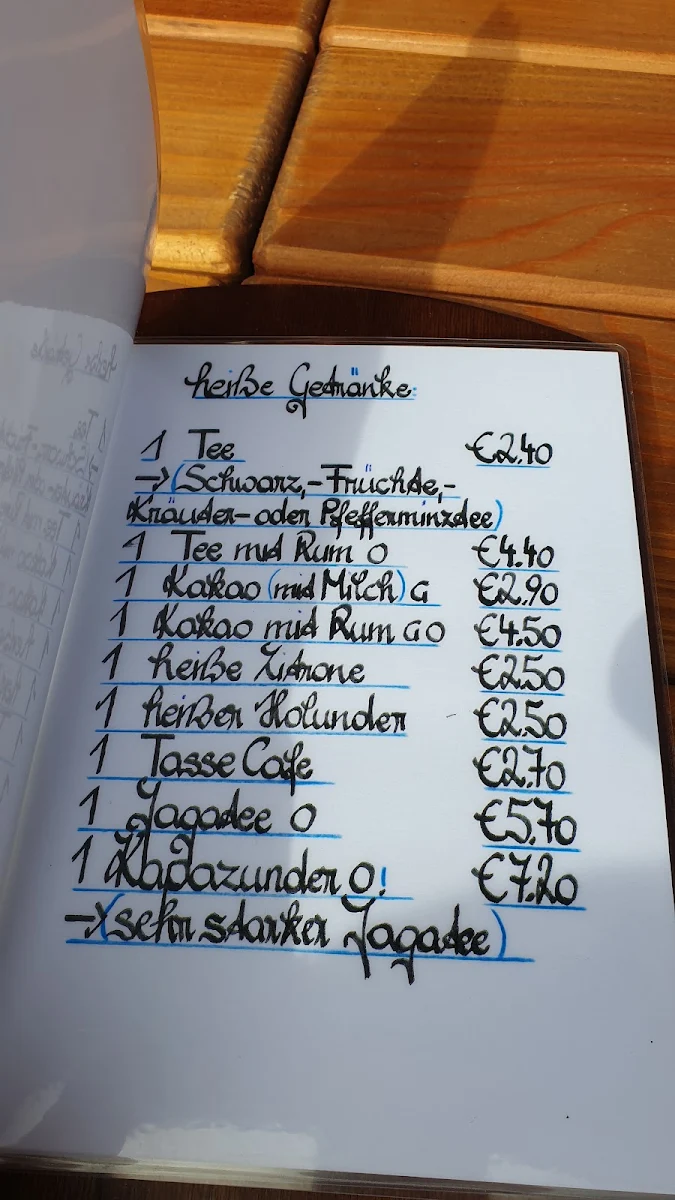 heiße Getränke:
1 Tee €2.40
→(Schwarz,-Früchte,-
Kräuter-oder Pfefferminztee)
1 Tee mit Rum O €4.40
1 Kakao (mit Milch) G €2.90
1 Kakao mit Rum G O €4.50
1 heiße Zitrone €2.50
1 heißer Holunder €2.50
1 Tasse Cafe €2.70
1 Jagatee O €5.70
1 Katazunder O! €7.20
→(sehr starker Jagatee)